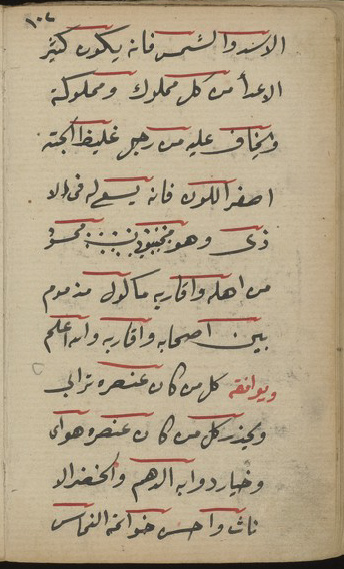 ١٠٢
الاسد والشمس فانه يكون كثير
الاعدأ من كل مملوك ومملوكة
ويخاف عليه من رجل غليظ الجته
اصفر اللون فانه يسعى له فى الا
ذى وهو محسود
من اهله واقاربه ماكول مذموم
بين اصحابه واقاربه والله اعلم
ويوافقه كل من كان عنصره ترابى
ويحذر كل من كان عنصره هواى
وخيار دوابه الدهم والخضر الا
ناث واحسن خواتمه النحاس